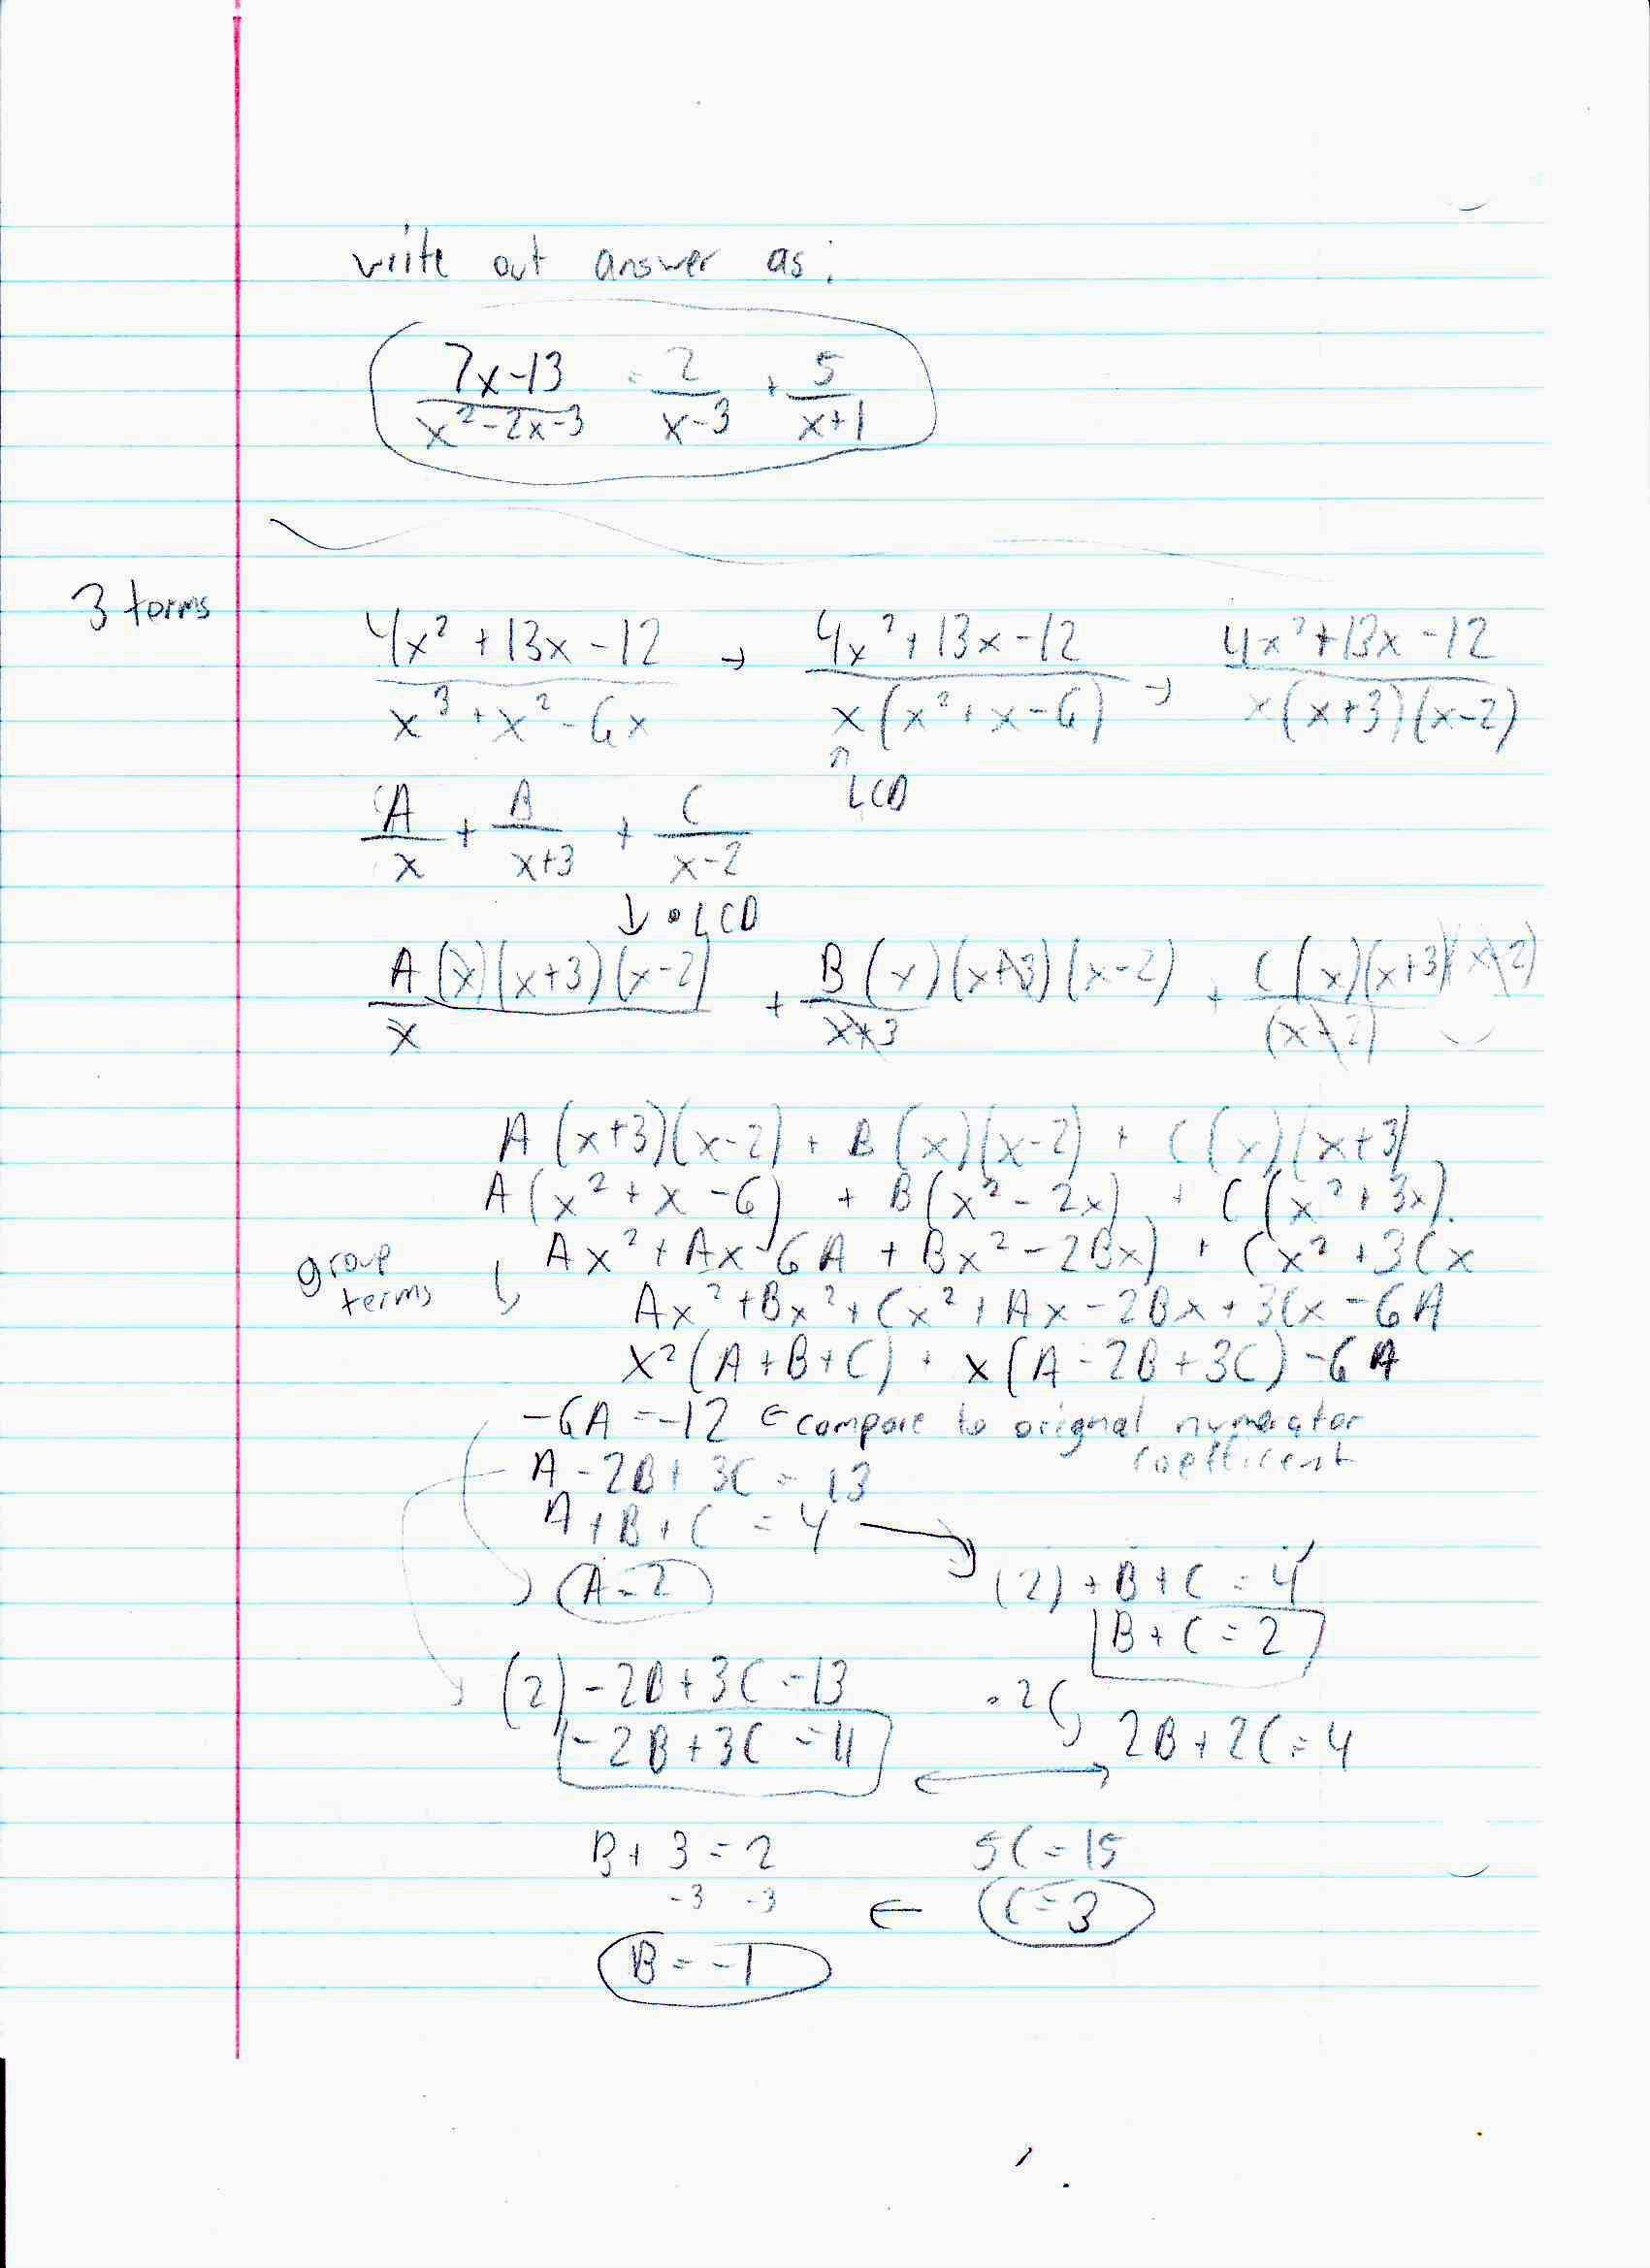 write out answer as:
7x-13 / x²-2x-3 = 2 / x-3 + 5 / x+1
3 terms
4x²+13x-12 / x³+x²-6x → 4x²+13x-12 / x(x²+x-6) → 4x²+13x-12 / x(x+3)(x-2)
↑
LCD
A/x + B/x+3 + C/x-2
↓ •LCD
A(x)(x+3)(x-2) / x + B(x)(x+3)(x-2) / x+3 + C(x)(x+3)(x-2) / (x-2)
A(x+3)(x-2) + B(x)(x-2) + C(x)(x+3)
A(x²+x-6) + B(x²-2x) + C(x²+3x)
Ax²+Ax-6A + Bx²-2Bx) + Cx²+3Cx
group terms ↳ Ax²+Bx²+Cx²+Ax-2Bx+3Cx-6A
x²(A+B+C) + x(A-2B+3C)-6A
-6A=-12 ← compare to original numerator
coefficient
A-2B+3C=13
A+B+C=4
A=2
(2)+B+C=4
B+C=2
(2)-2B+3C=13
-2B+3C=11
•2
2B+2C=4
B+3=2
-3 -3
5C=15
← C=3
B=-1